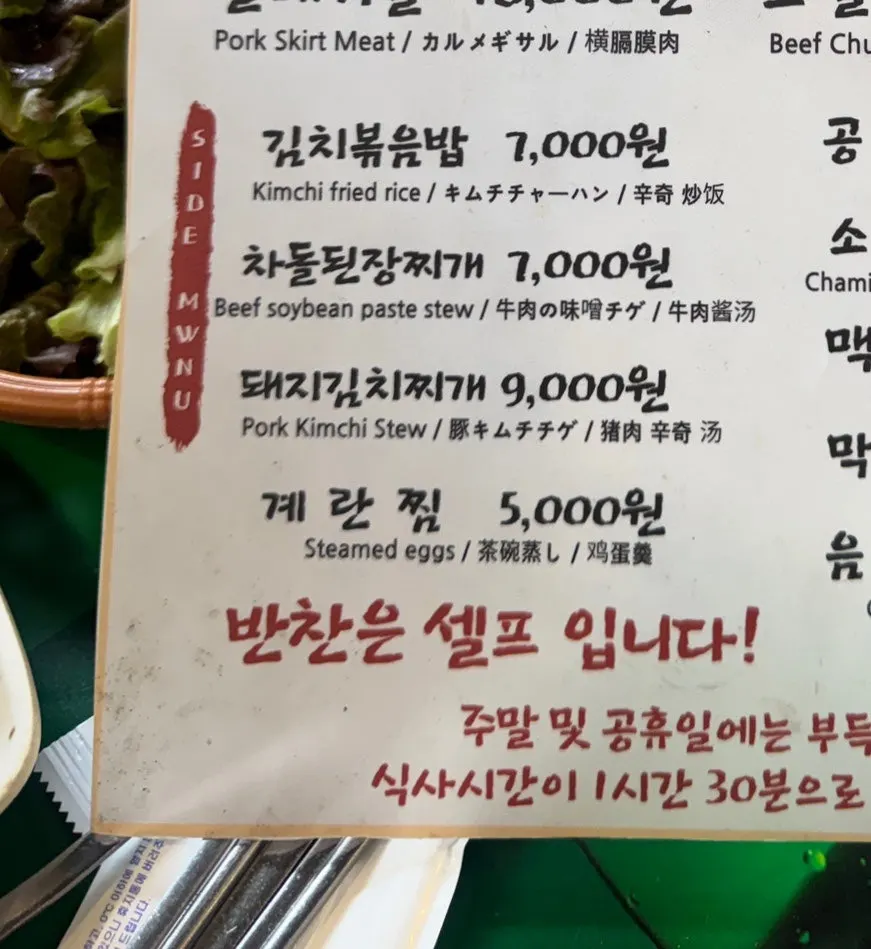 Pork Skirt Meat / カルメギサル / 横膈膜肉
Beef
SIDE MWNU
김치볶음밥 7,000원
Kimchi fried rice / キムチチャーハン / 辛奇 炒饭
차돌된장찌개 7,000원
Beef soybean paste stew / 牛肉の味噌チゲ / 牛肉酱汤
돼지김치찌개 9,000원
Pork Kimchi Stew / 豚キムチチゲ / 猪肉 辛奇 汤
계란찜 5,000원
Steamed eggs / 茶碗蒸し / 鸡蛋羹
공
소
Chami
맥
막
음
반찬은 셀프 입니다!
주말 및 공휴일에는 부득
식사시간이 1시간 30분으로